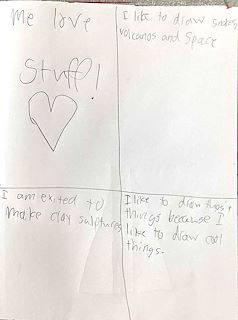 me love
Stuff!
I like to draw snakes,
volcanos and space
I am exited to
make clay sulptures
I like to draw
things because I
like to draw cool
things.